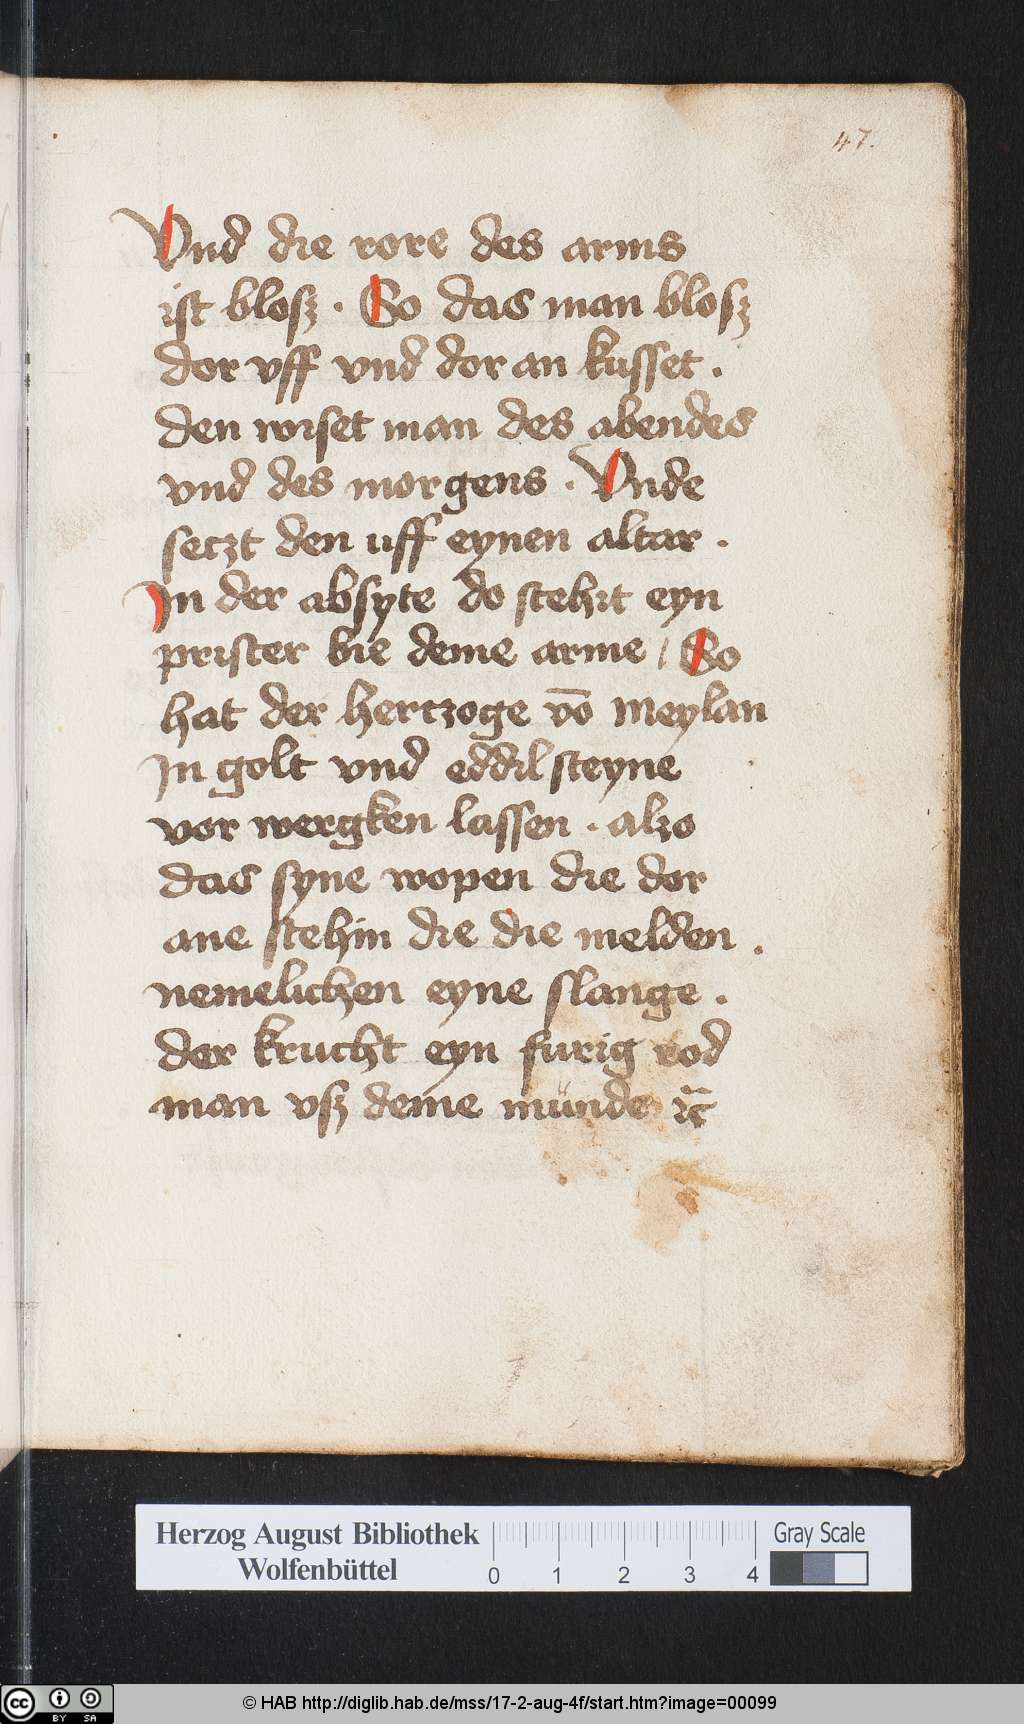 47.
Vnd die rore des arms
ist blosz · So das man blosz
dor vff vnd dor an kusset .
den wiset man des abendes
vnd des morgens . Vnde
seczt den uff eynen altar .
In der absyte do stehit eyn
prister bie deme arme / So
hat der hertzoge vō Meylan
In golt vnd eddil steyne
vor wergken lassen . alzo
das syne wopen die dor
ane stehin die die melden .
nemelichen eyne slange .
der krucht eyn furig rod
man vsz deme munde ⁊c̄
Herzog August Bibliothek
Wolfenbüttel
0 1 2 3 4
Gray Scale
cc BY SA
© HAB http://diglib.hab.de/mss/17-2-aug-4f/start.htm?image=00099